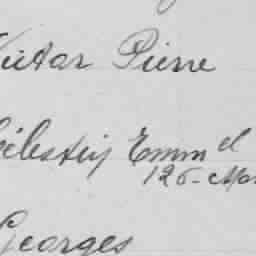 Victor Pierre
Célestin Emm^el
126 - Mar
Georges